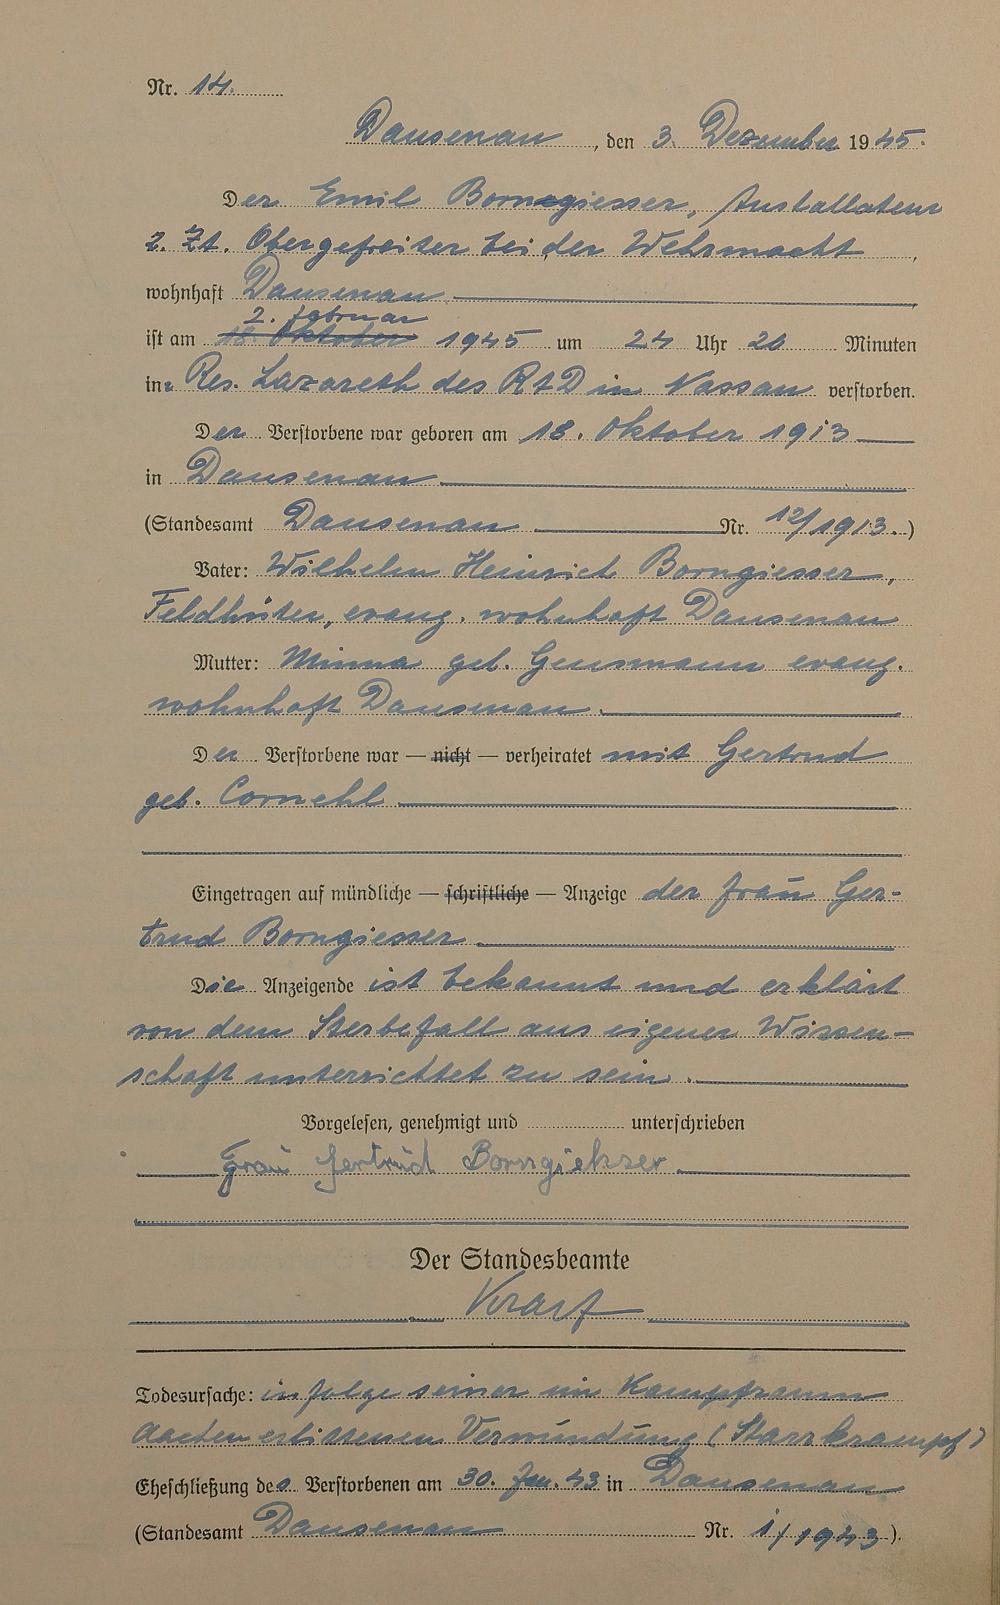 Nr. 14.
Dausenau, den 3. Dezember 1945.
Der Emil Borngiesser, Installateur
z. Zt. Obergefreiter bei der Wehrmacht,
wohnhaft Dausenau
2. Februar
ist am 18. Oktober 1945 um 24 Uhr 20 Minuten
in: Res. Lazareth des RAD in Nassau verstorben.
Der Verstorbene war geboren am 18. Oktober 1913
in Dausenau
(Standesamt Dausenau Nr. 12/1913.)
Vater: Wilhelm Heinrich Borngiesser,
Feldhüter, evang. wohnhaft Dausenau
Mutter: Minna geb. Geusmann evang.
wohnhaft Dausenau.
Der Verstorbene war — nicht — verheiratet mit Gertrud
geb. Cornehl
Eingetragen auf mündliche — schriftliche — Anzeige der Frau Ger-
trud Borngiesser
Die Anzeigende ist bekannt und erklärt
von dem Sterbefall aus eigener Wissen-
schaft unterrichtet zu sein.
Vorgelesen, genehmigt und unterschrieben
Frau Gertrud Borngiehser.
Der Standesbeamte
Todesursache: in folge seiner im Kampfraum
Aachen erlittenen Verwundung (Starrkrampf)
Eheschließung des Verstorbenen am 30. Jan. 43 in Dausenau
(Standesamt Dausenau Nr. 1/1943).